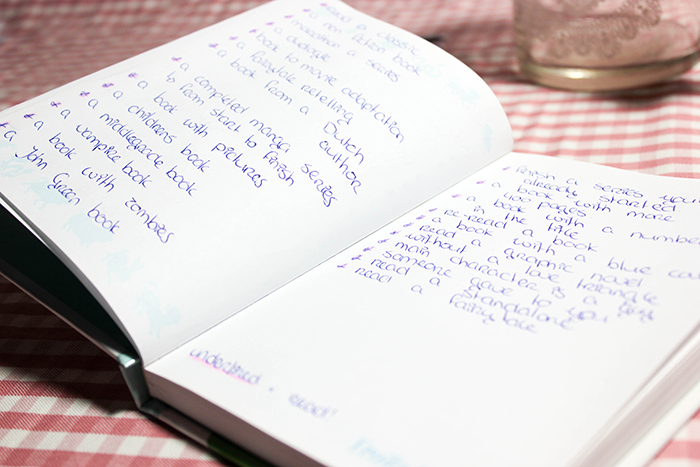 * read a classic
* a non fiction book
* marathon a series
* a duologie
* book to movie adaptation
* a fairytale retelling
* a book from a Dutch author
* a completed manga series
↳ from start to finish
* a book with pictures
* a childrens book
* a middlegrade book
* a vampire book
* a book with zombies
* a John Green book
* finish a series you
already started
* a book with more
400 pages
* a book with a number
in the title
* re-read a book
* a book with a blue
* read a graphic novel
* without a love triangle
* main character is a boy
* someone gave to you
* read a standalone
* read a fairytale
underlined = read